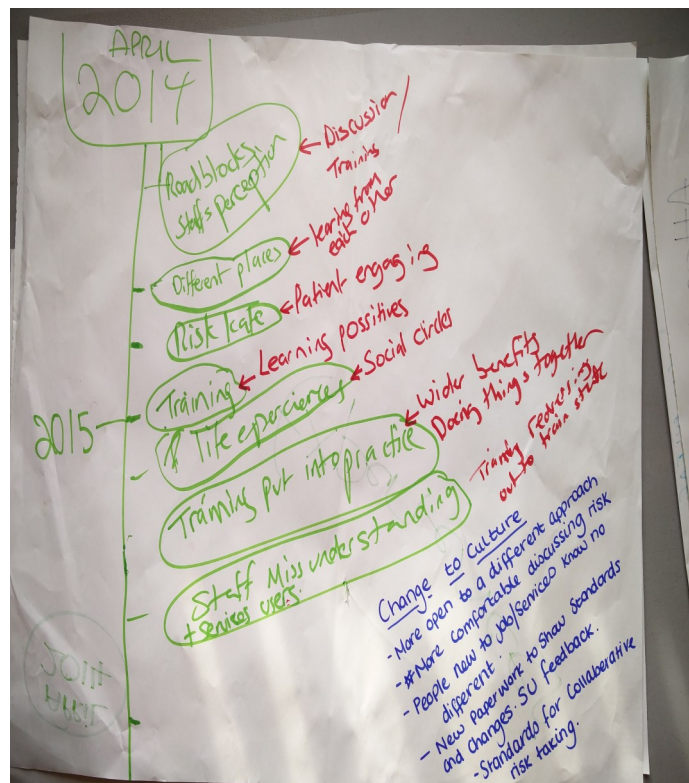 APRIL
2014
Roadblocks
Staffs perception
← Discussion /
Training
Different places
← learing from
each other
Risk
← Patient engaging
Training
← Learning possitives
2015
life eperciences
← Social circles
Training put into practice
← Wider benefits
Doing things together
Staff Miss understanding
+ services users.
Training
out to train staff
Change to Culture
- More open to a different approach
- * More comfortable discussing risk
- People new to job/services know no
different.
- New Paperwork to Show Standards
and changes. SU feedback.
- Standards for Collaborative
risk taking.
APRIL
2014